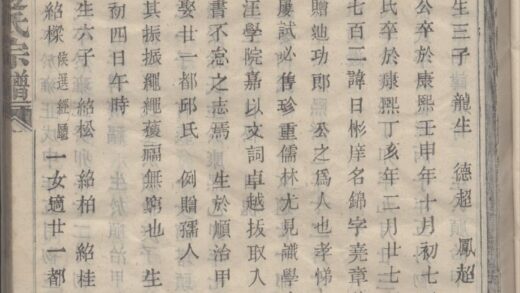 生三子 龍生 德超 鳳超
公卒於康熙壬申年十月初七
氏卒於康熙丁亥年二月廿七
七百二諱日彬庠名錦字堯章
贈迪功郎 公之為人也孝悌
屢試必售珍重儒林尤見識學
汪學院嘉以文詞卓越拔取入
書不忘之志焉 生於順治甲
娶廿一都邱氏 例贈孺人
其振振繩繩獲福無窮也 生
初四日午時
生六子 紹松 紹柏 紹桂
紹樑 候選經歷 一女適廿一都
氏宗譜